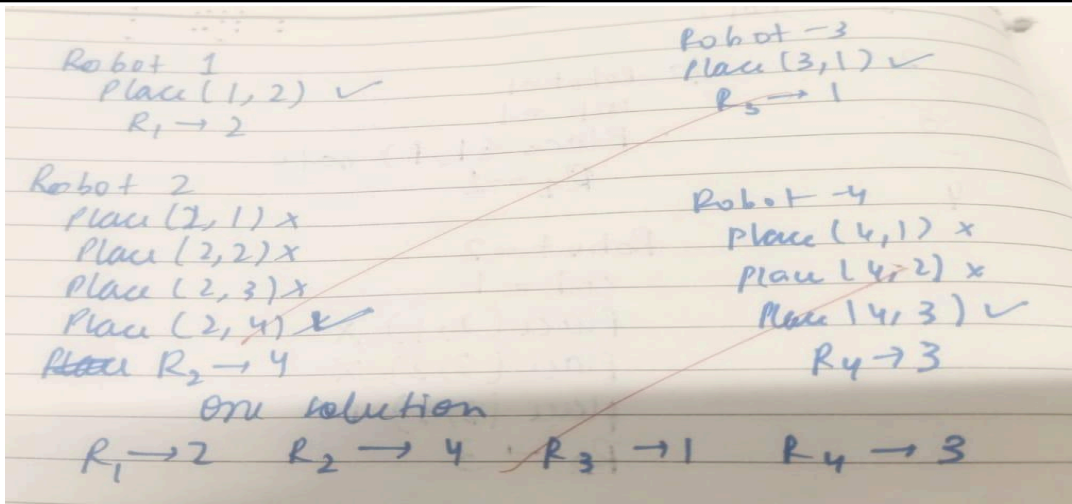 Robot 1
Place (1, 2) ✓
R₁ → 2
Robot 2
Place (2, 1) x
Place (2, 2) x
Place (2, 3) x
Place (2, 4) ✓
R₂ → 4
Robot - 3
Place (3, 1) ✓
R₃ → 1
Robot - 4
Place (4, 1) x
Place (4, 2) x
Place (4, 3) ✓
R₄ → 3
One solution
R₁ → 2 R₂ → 4 R₃ → 1 R₄ → 3